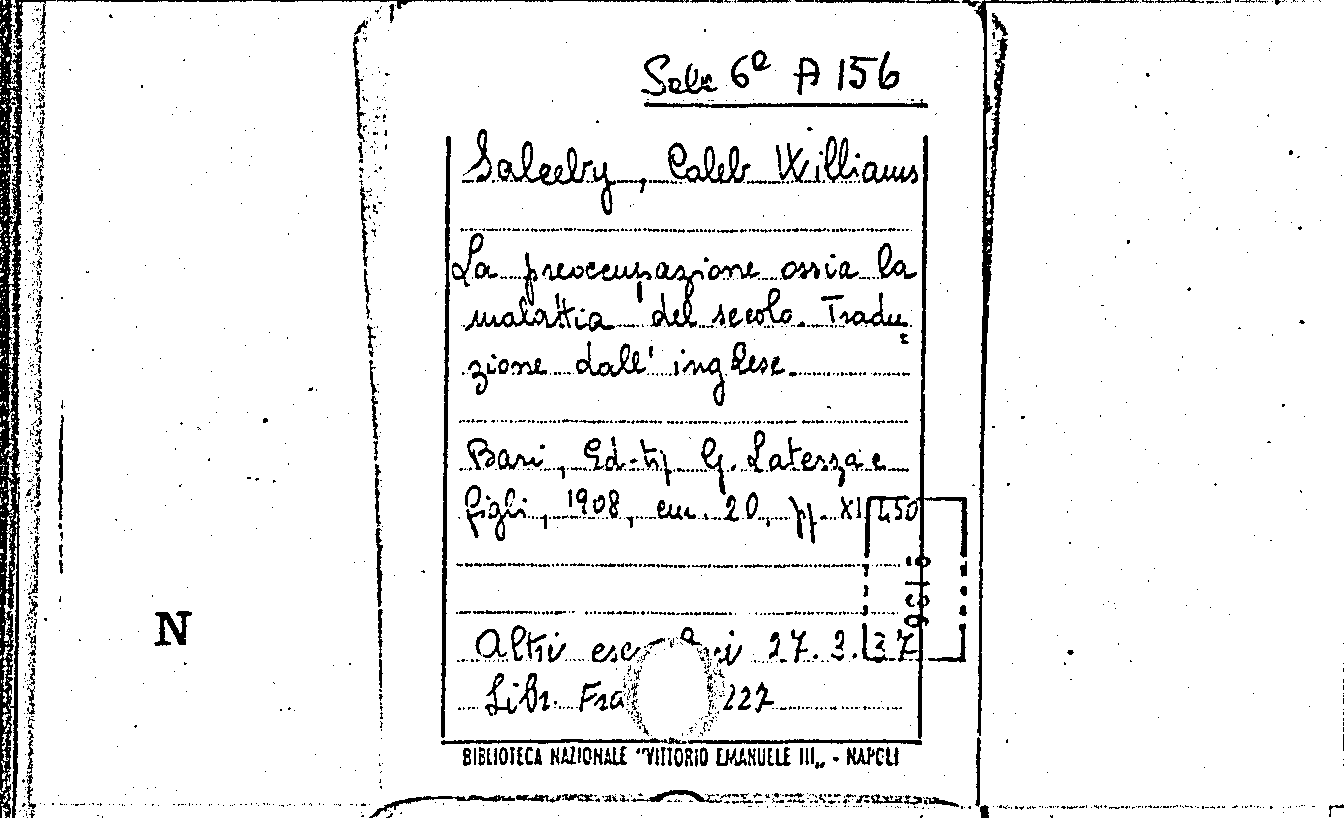 Sala 6ª A 156
Saleeby, Caleb Williams
La preoccupazione ossia la
malattia del secolo. Tradu-
zione dall'inglese.
Bari, Ed-tip. G. Laterza e
figli, 1908, cm. 20, pp. XI 450
Altri 27.3.37
Libr. 227
N
BIBLIOTECA NAZIONALE "VITTORIO EMANUELE III„ - NAPOLI